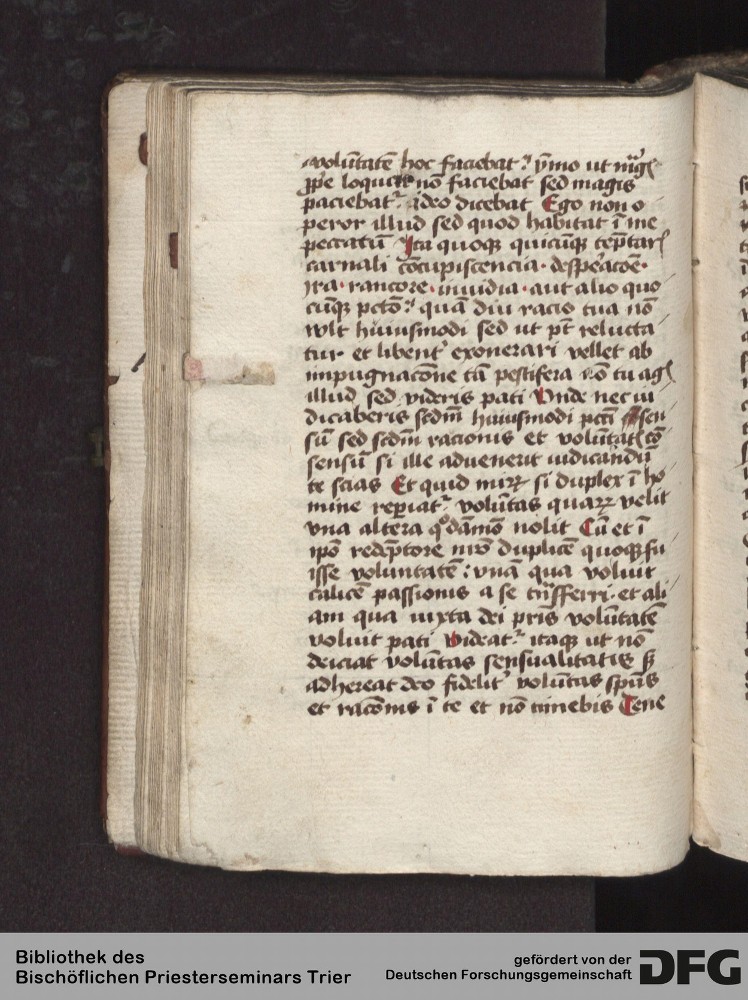 voluntatē hoc faciebat ymo ut
loqur nō faciebat sed magis
paciebat ideo dicebat Ego non o
peror illud sed quod habitat ī me
peccatū Ita quoqꝫ quicūqꝫ
carnali cōcupiscencia · despācōe ·
ira · rancore · inuidia · aut alio quo
cūqꝫ pctō quā diu racio tua nō
wlt huiusmodi sed ut pt relucta
tur et libent exonerari vellet ab
impugnacōne tā pestifera nō tu
illud sed videris pati Vnde nec iu
dicaberis scdm̄ huiusmodi pcti sen
sū sed scdm̄ racionis et volūtat
sensū si ille aduenerit iudicandū
te scias Et quid mirꝝ si duplex ī ho
mine repiat volūtas quarꝝ velit
vna altera qdāmō nolit Cū et ī
ipō redēptore nrō duplicē quoqꝫ fu
isse voluntatē vnā qua voluit
calicē passionis a se trāsferri · et ali
am qua iuxta dei pris volūtatē
voluit pati Videat itaqꝫ ut nō
deiciat volūtas sensualitatis ꝫ
adhereat deo fidelit volūtas spūs
et racōnis ī te et nō timebis Tene
Bibliothek des
Bischöflichen Priesterseminars Trier
gefördert von der
Deutschen Forschungsgemeinschaft
DFG